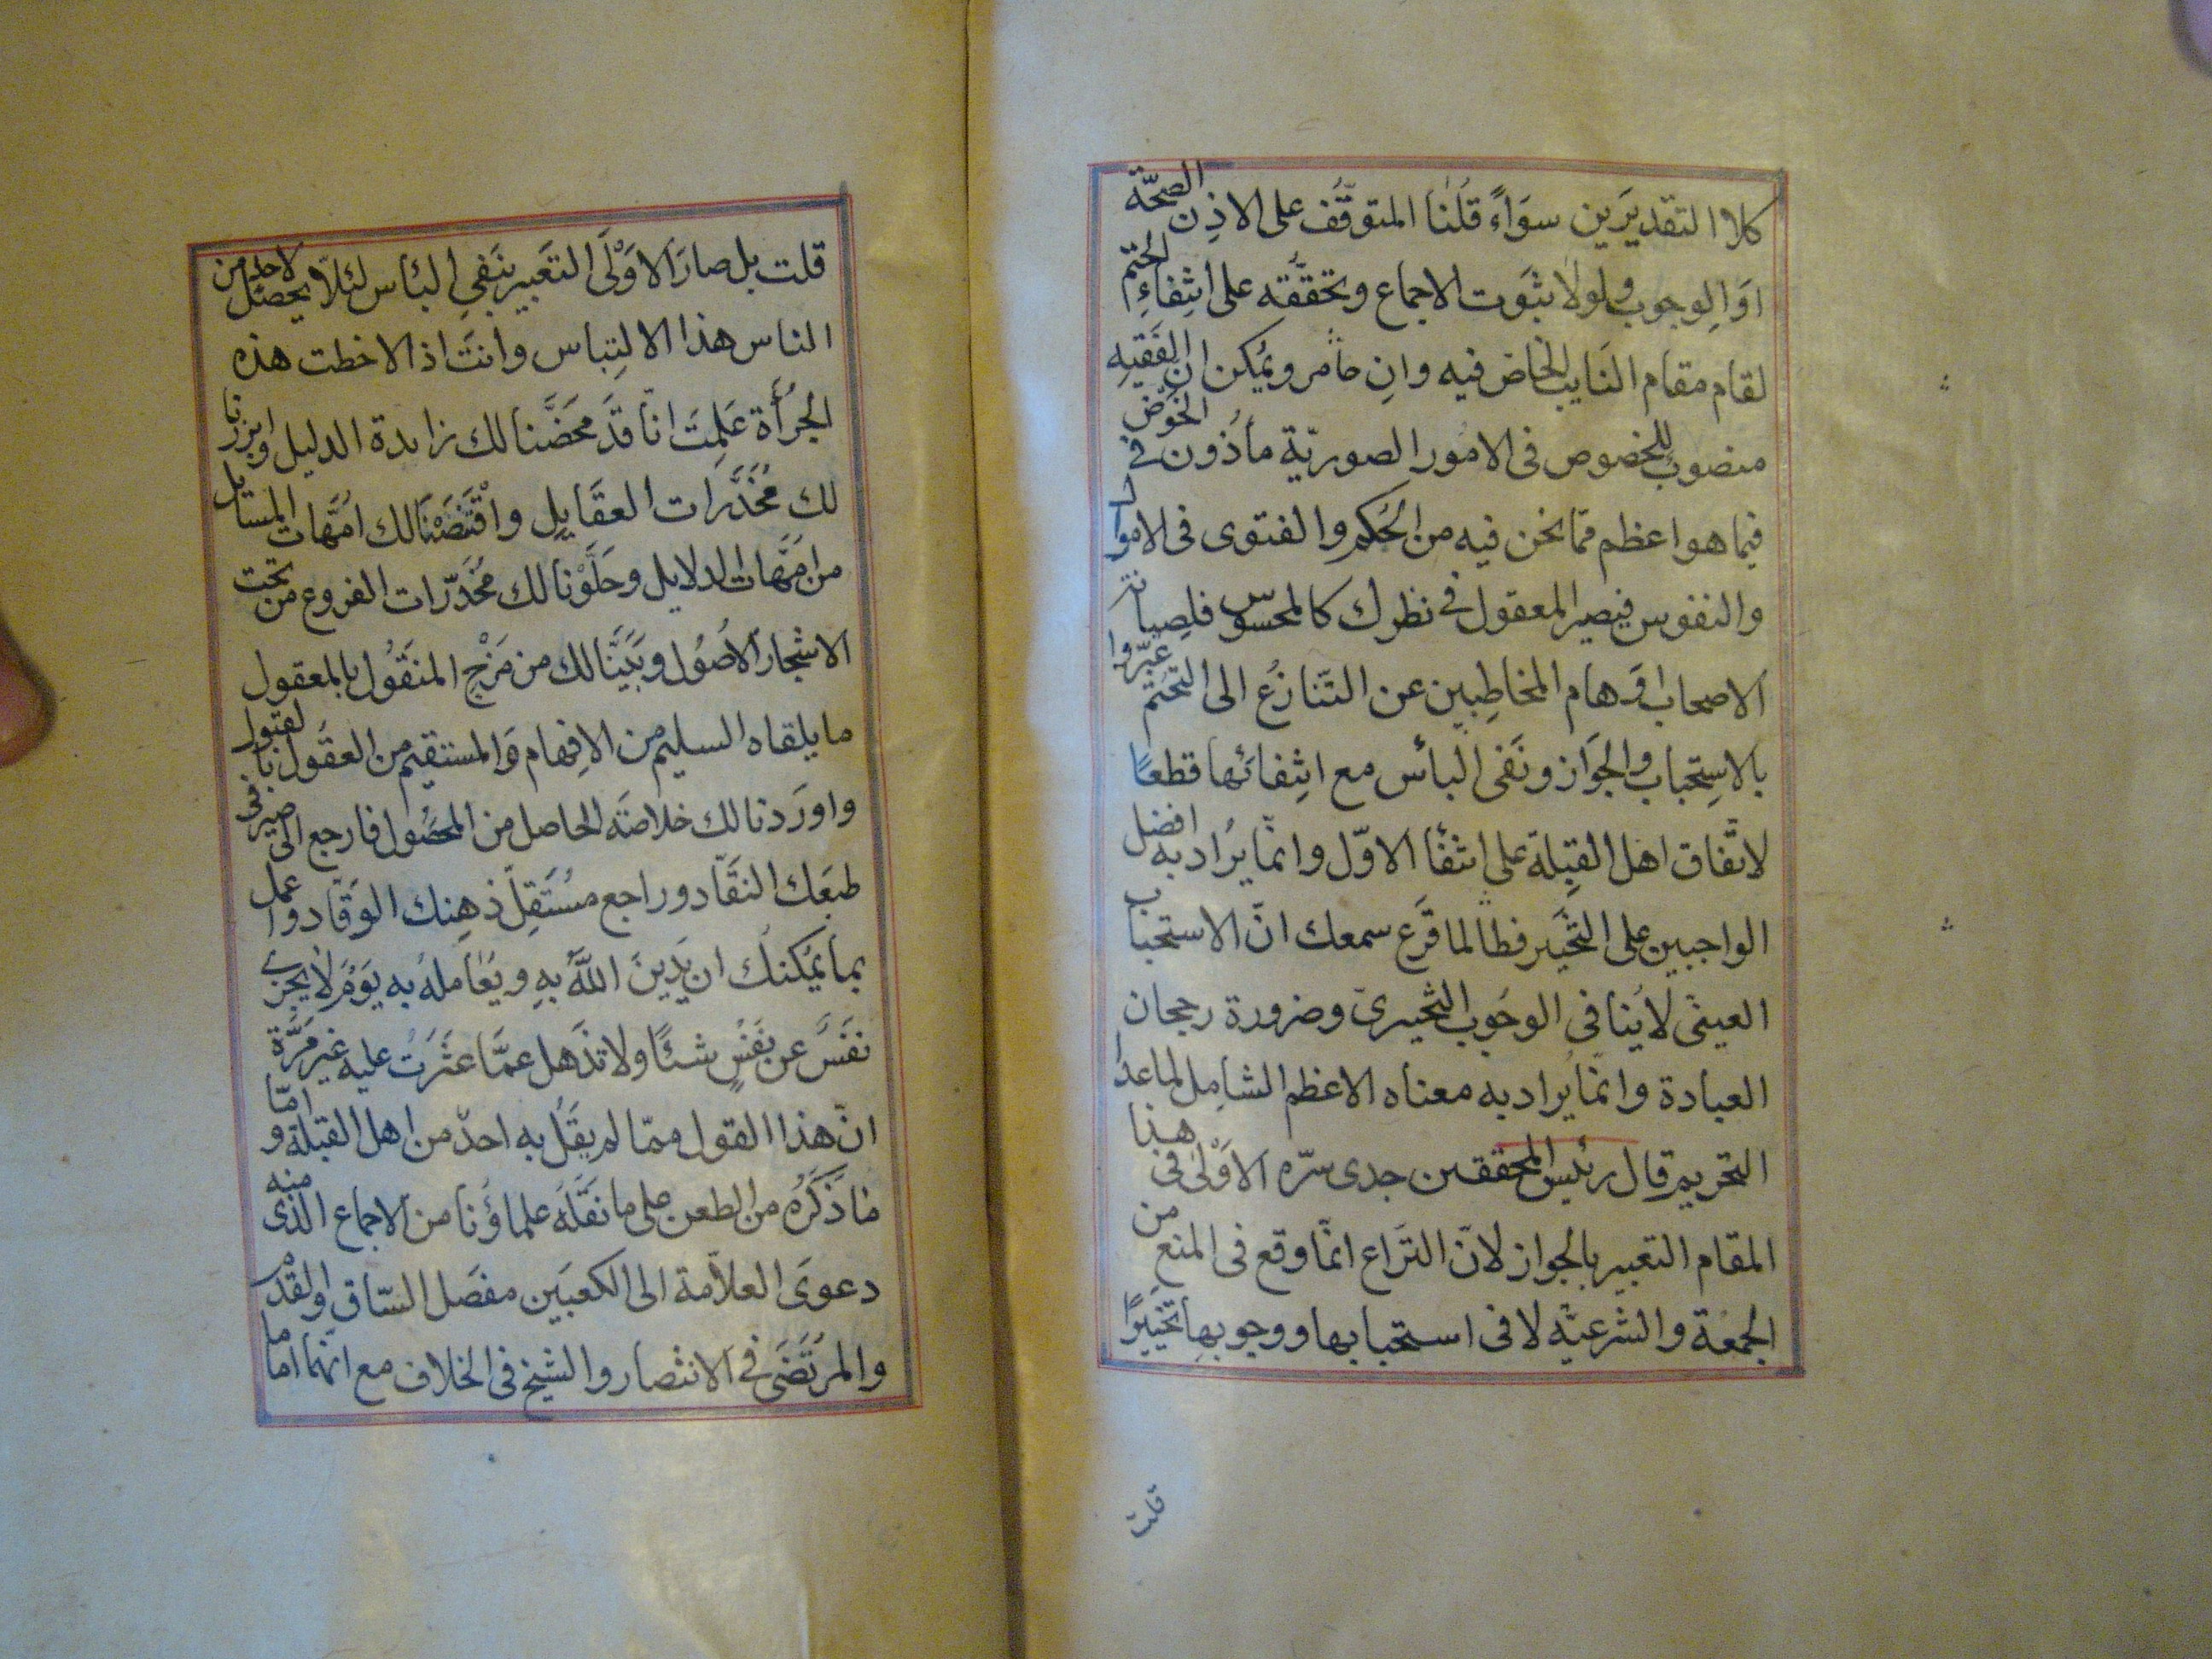 كلا التقديرين سواءً قلنا المتوقّف على الاذن الصحّة
او الوجوب ولولا ثبوت الاجماع وتحققه على انتفاء التحتم
لقام مقام النايب الخاص فيه وان حامر ويمكن ان الفقيه
منصوب للخصوص فى الامور الصوريّة مأذون فى الخوض
فيما هو اعظم ممّا نحن فيه من الحكم والفتوى فى الاموال
والنفوس فيصير المعقول فى نظرك كالمحسوس فلصيانة
الاصحاب اوهام المخاطبين عن التنازع الى التحتم عبّروا
بالاستحباب والجواز ونفى البأس مع انتفائها قطعًا
لاتّفاق اهل القبلة على انتفأ الاوّل وانمّا يراد به افضل
الواجبين على التخيير فطالما قرع سمعك انّ الاستحباب
العينى لا ينافى الوجوب التخييرىّ وضرورة رجحان
العبادة وانمّا يراد به معناه الاعظم الشامل لما عدا
التحريم قال رئيس المحققين جدى سرّه الاَوْلى فى هذا
المقام التعبير بالجواز لانّ النزاع انمّا وقع فى المنع من
الجمعة والشرعيّة لا فى استحبابها ووجوبها تخييرًا
قلت
قلت بل صار الاَوْلَى التعبير بنفي البأس لئلّا يحصل لاحد من
الناس هذا الالتباس وانت اذ الاخطت هذه
الجرأة علمت انّا قد محضّنا لك زابدة الدليل وابرزنا
لك مخدّرات العقايل واقتنصنا لك امّهات المسايل
من امّهات الدلايل وحلّونا لك مخدّرات الفروع من تحت
الاشجار الاصول وبيّنا لك من مزج المنقول بالمعقول
ما يلقاه السليم من الافهام والمستقيم من العقول بالقبول
واوردنا لك خلاصة الحاصل من المحصول فارجع الى صيرفى
طبعك النقّاد وراجع مستقلّ ذهنك الوقّاد واعمل
بما يمكنك ان يدين اللّه به ويعامله به يوم لا يجزى
نفس عن نفس شئًا ولا تذهل عمّا عثرت عليه غير مرّة
انّ هذا القول ممّا لم يقل به احدّ من اهل القبلة و امّا
ما ذكره من الطعن على ما نقله علماؤنا من الاجماع الذى منه
دعوى العلاّمة الى الكعبين مفصل السّاق والقدم
والمرتضى فى الانتصار والشيخ فى الخلاف مع انّهما اماما